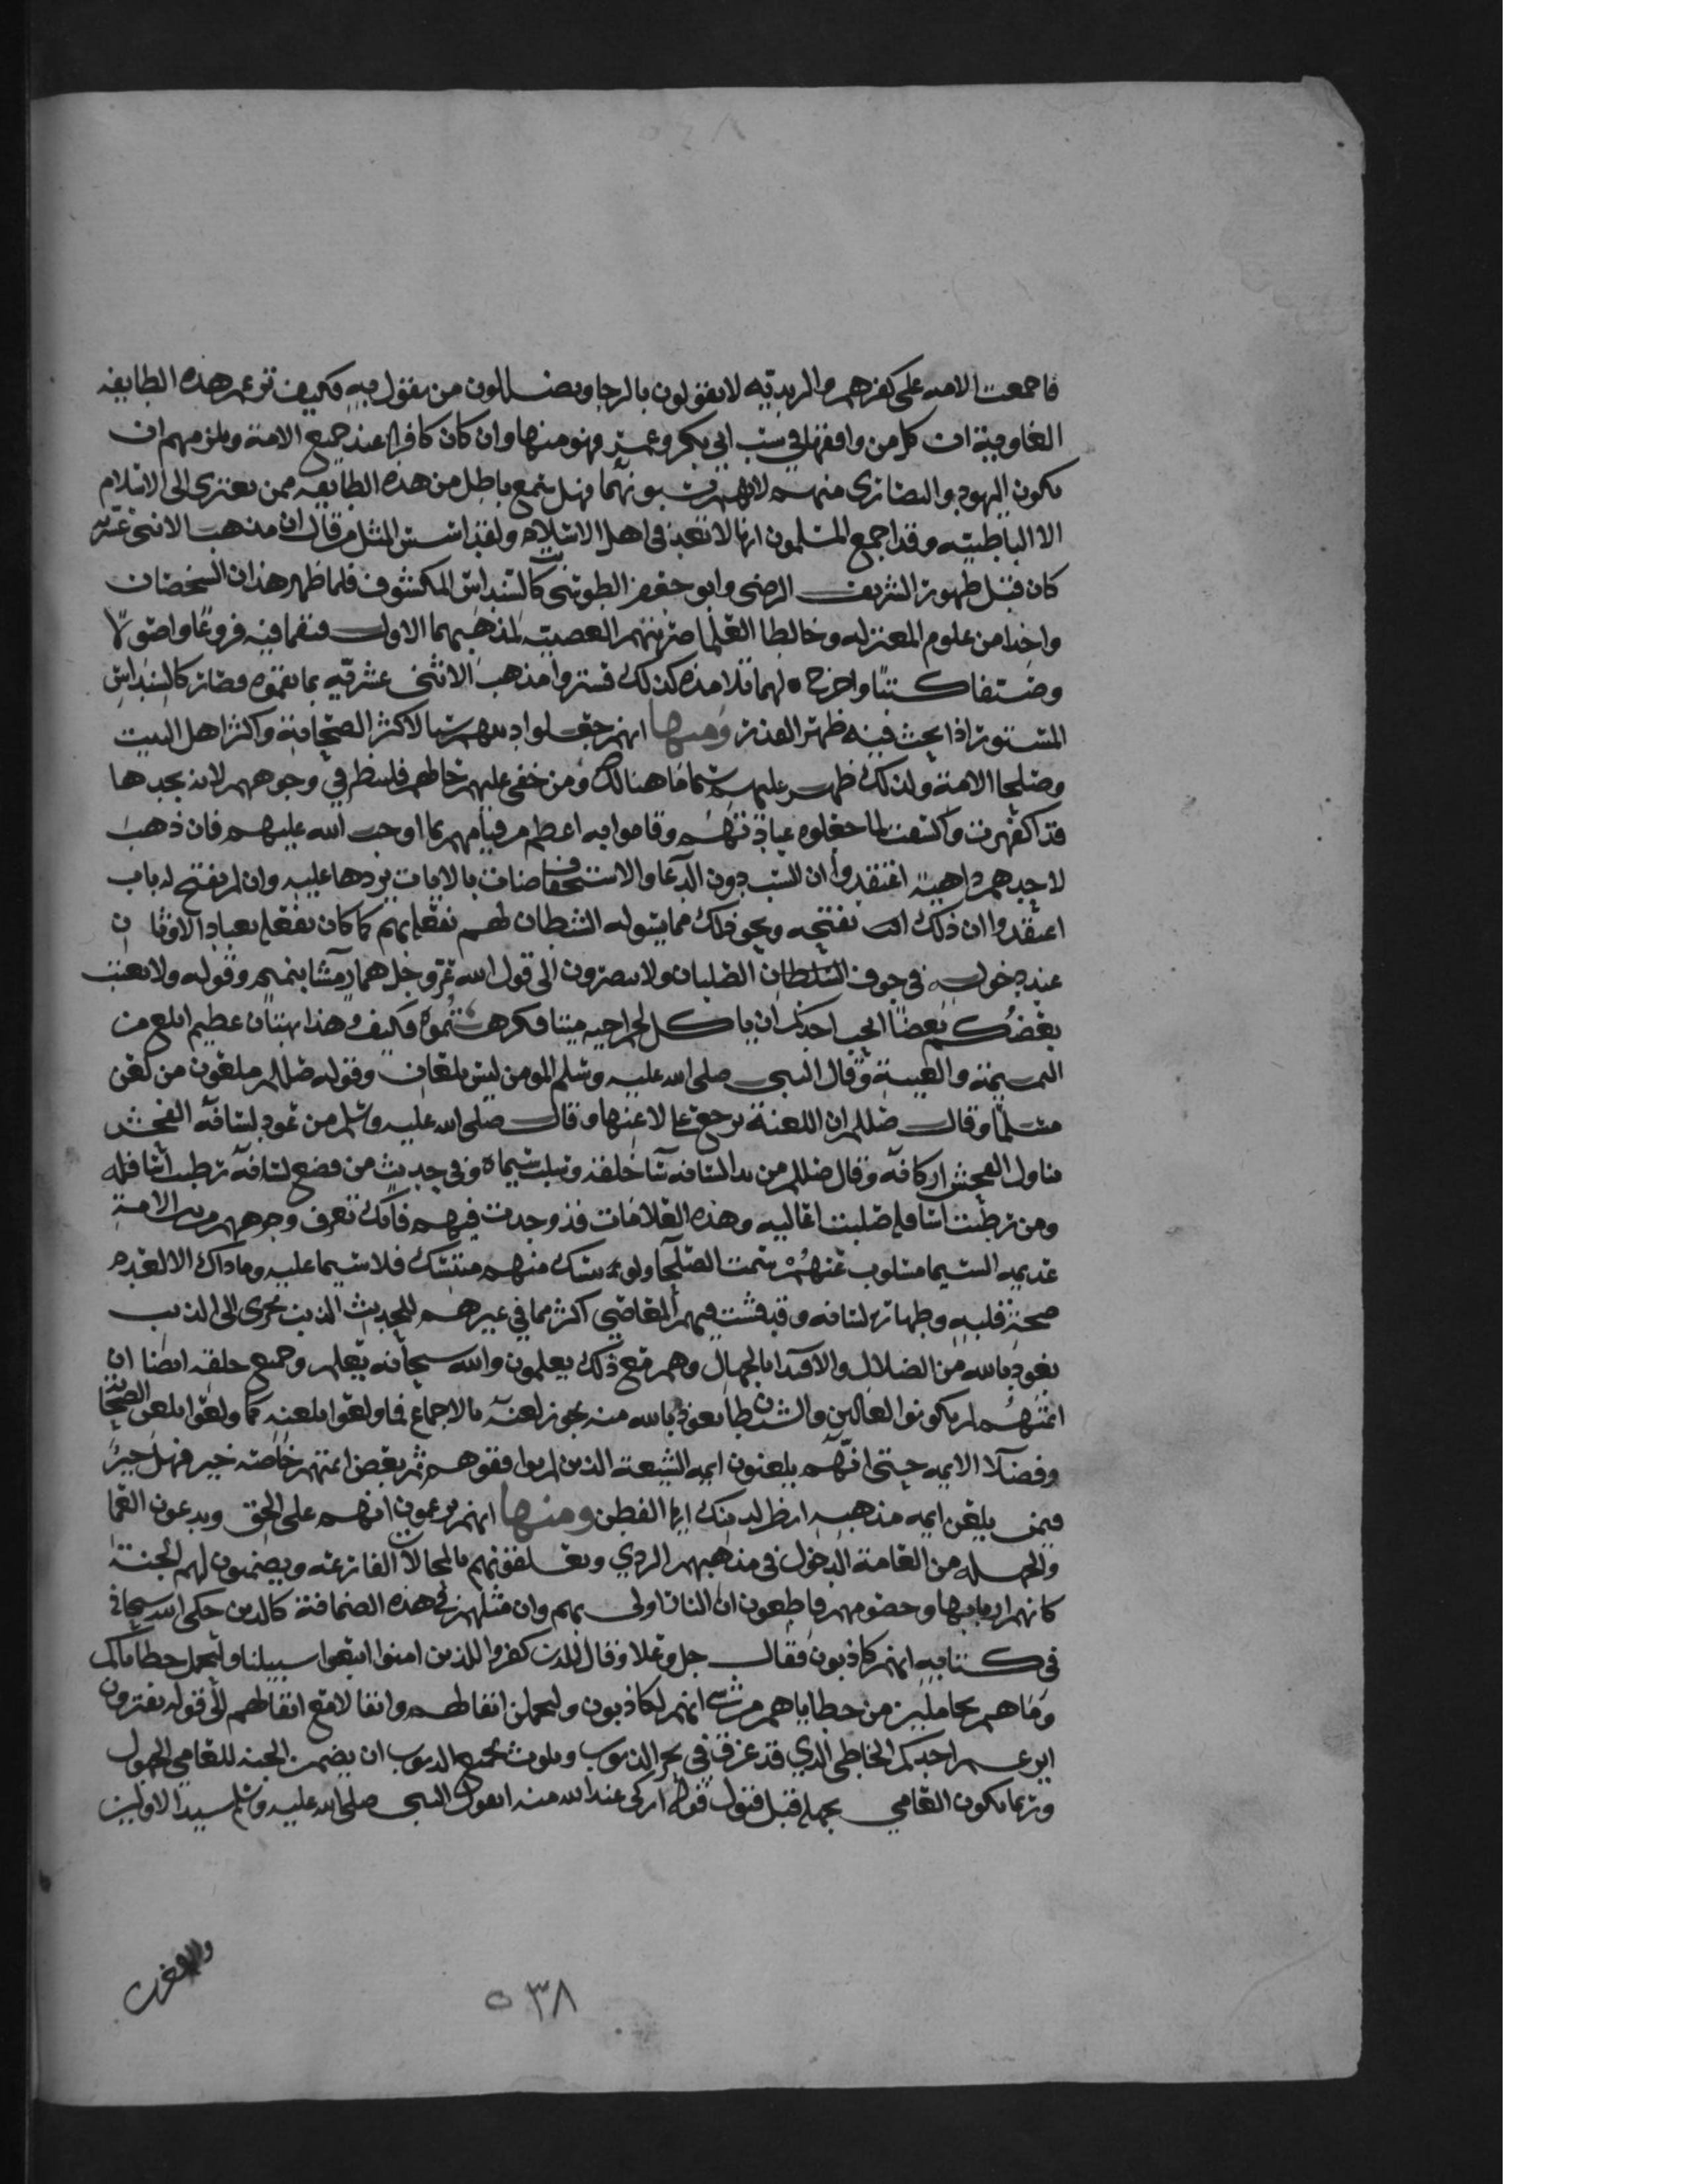 فاجمعت الامه على كفرهم والزيديه لا يقولون بالرجا ويضللون من يقول به فكيف تزعم هذه الطايفه
الغاوية ان كل من وافقها في سب ابي بكر وعمر فهو منها وان كان كافرا عند جميع الامة ويلزمهم ان
يكون اليهود والنصارى منهم لانهم يسبونهما فهل سمع باطل من هذه الطايفه ممن يعتزى الى الاسلام
الا الباطنيه وقد اجمع المسلمون انها لا تعد في اهل الاسلام ولقد احسن المثل من قال ان مذهب الاثنى عشريه
كان قبل ظهور الشريف الرضى وابو جعفر الطوسى كالسنداس المكشوف فلما ظهر هذان الشخصان
واخذا من علوم المعتزله وخالطا العلما ضربتهم العصبيه لمذهبهما الاول فنقما فيه فروعا واصولا
وصنفا كتبا واخرج لهما تلامذه كذلك فستروا مذهب الاثنى عشريه بما نقموه فصار كالسنداس
المستور اذا بحث فيه ظهر القذر ومنها انهم جعلوا دينهم سبا لاكثر الصحابة واكثر اهل البيت
وصلحا الامة ولذلك ظهر عليهم سيما ما هنالك ومن خفى عليه خاطهم فلينظر في وجوههم لانه يجدها
قد اكفهرت واكسفت لما جعلوه عبادتهم وقاموا به اعظم من قيامهم بما اوجب الله عليهم فان ذهب
لاحدهم داهية اعتقدوا ان السب دون الدعا والاستخفاف بالايات يردها عليه وان لم يفتح له باب
اعتقدوا ان ذلك السب يفتحه ونحو ذلك مما يسوله الشيطان لهم بفعلهم كما كان يفعل بعباد الاوثان
عند دخوله في جوف السلطان الصلبان ولا يبصرون الى قول الله عز وجل هماز مشا بنميم وقوله ولا يغتب
بعضكم بعضا ايحب احدكم ان ياكل لحم اخيه ميتا فكرهتموه فكيف وهذا بهتان عظيم ابلغ من
النميمة والغيبة وقال النبي صلى الله عليه وسلم المومن ليس بلعان وقوله صللم ملعون من لعن
مسلما وقال صللم ان اللعنة ترجع على لاعنها وقال صلى الله عليه وسلم من عود لسانه الفحش
تناول الفحش اركانه وقال صللم من بدا لسانه سا خلقه وسلب سيماه وفي حديث من فضع لسانه رطب اسافله
ومن رطبت اسافله صلبت اعاليه وهذه العلامات قد وجدت فيهم فانك تعرف وجوههم من بين الامة
عديمه السيما مسلوب عنهم سمت الصلحا ولو تنسك منهم متنسك فلا سيما عليه وما ذاك الا لعدم
صحة قلبه وطهارة لسانه وقد فشت فيهم المعاصي اكثر مما في غيرهم للحديث الذنب يجرى الى الذنب
نعوذ بالله من الضلال والاقتدا بالجهال وهم مع ذلك يعلمون والله سبحانه يعلم وجميع خلقه ايضا ان
ايمتهم لم يكونوا لعانين والشيطان نعوذ بالله منه يجوز لعنه بالاجماع فما ولعوا بلعنه كما ولعوا بلعن الصحابة
وفضلا الايمه حتى انهم يلعنون ايمه الشيعة الذين لم يوافقوهم ثم بعض ايمتهم خاصه خير فهل خير
فيمن يلعن ايمه مذهبه انظر لدينك ايها الفطن ومنها انهم يزعمون انهم على الحق ويدعون العما
والجهله من العامة الدخول في مذهبهم الردي ويعلفونهم بالمحالات الفارغه ويضمنون لهم الجنة
كانهم اربابها وخصومهم قاطعون ان النار اولى بهم وان مثلهم في هذه الضمانة كالذين حكى الله سبحانه
في كتابه انهم كاذبون فقال جل وعلا وقال الذين كفروا للذين امنوا اتبعوا سبيلنا ولنحمل خطاياكم
وما هم بحاملين من خطاياهم من شى انهم لكاذبون وليحملن اثقالهم واثقالا مع اثقالهم الى قوله يفترون
ايزعم احدكم الخاطى الذي قد غرق في بحر الذنوب وتلوث بجميع الذنوب ان يضمن الجنة للعامي الجهول
وربما يكون العامي بجهله قبل قبول قوله ازكى عند الله منه ايقول النبي صلى الله عليه وسلم سيد الاولين
والاخرين
٥٣٨